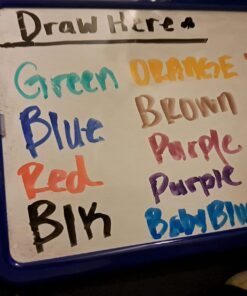 Draw Here
Green ORANGE
Blue BROWN
Red Purple
Blk Purple
Baby Blue